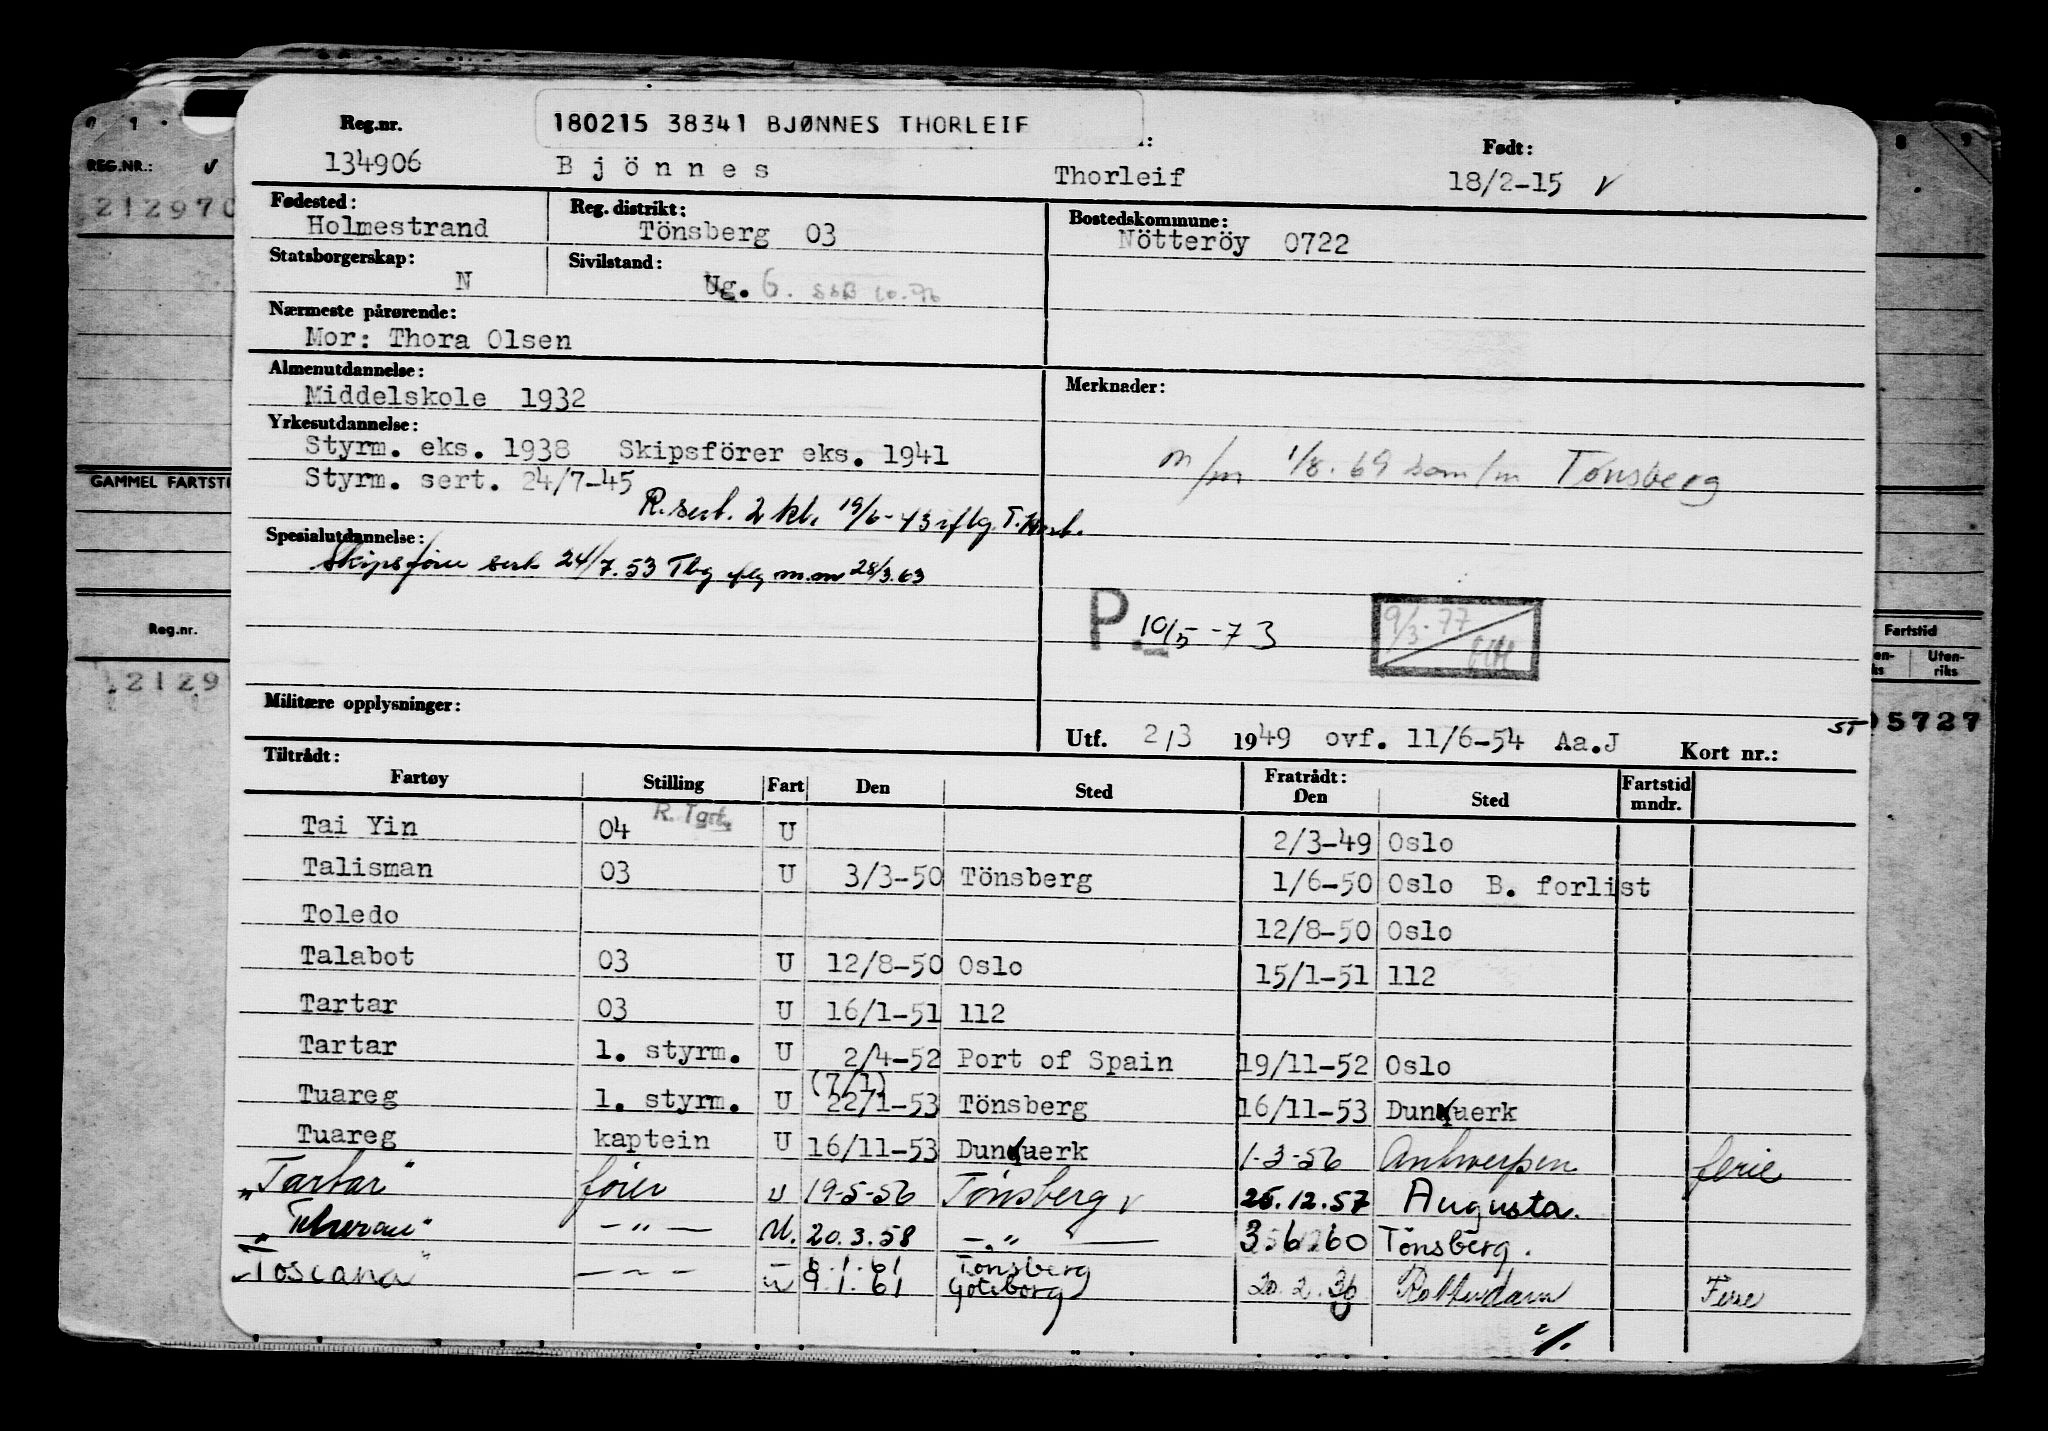 180215 38341 BJØNNES THORLEIF
Reg.nr. Født:
134906 Bjönnes Thorleif 18/2-15 v
REG.NR.: v
212970
Fødested: Reg. distrikt: Bostedskommune:
Holmestrand Tönsberg 03 Nötteröy 0722
Statsborgerskap: Sivilstand:
N Ug. G.
Nærmeste pårørende:
Mor: Thora Olsen
Almenutdannelse: Merknader:
Middelskole 1932
Yrkesutdannelse:
Styrm. eks. 1938 Skipsförer eks. 1941
m/m 1/8.69 som/m Tønsberg
Styrm. sert. 24/7-45
GAMMEL FARTSTI
R.sert. 2 kl. 19/6-43
Spesialutdannelse:
24/7.53 Tbg m.m 28/3.63
P. 10/5-73 9/3-77
Reg.nr. Fartstid
Uten-
riks
2129
Militære opplysninger:
05727
Utf. 2/3 1949 ovf. 11/6-54 Aa.J Kort nr.:
Tiltrådt: Fratrådt:
Fartøy Stilling Fart Den Sted Den Sted Fartstid mndr.
Tai Yin 04 R. Tgrf. U 2/3-49 Oslo
Talisman 03 U 3/3-50 Tönsberg 1/6-50 Oslo B. forlist
Toledo 12/8-50 Oslo
Talabot 03 U 12/8-50 Oslo 15/1-51 112
Tartar 03 U 16/1-51 112
Tartar 1. styrm. U 2/4-52 Port of Spain 19/11-52 Oslo
(7/1)
Tuareg 1. styrm. U 22/1-53 Tönsberg 16/11-53 Dunkuerk
Tuareg kaptein U 16/11-53 Dunkuerk 1-3-56 Antwerpen ferie
"Tartar" fører u 19-5-56 Tønsberg v 26.12.57 Augusta.
"Theran" —"— U. 20.3.58 —"— 3.6.60 Tønsberg.
8.1.61 Tønsberg
Toscana" — — — u 9.1.61 Göteborg 20.2. Rotterdam Ferie